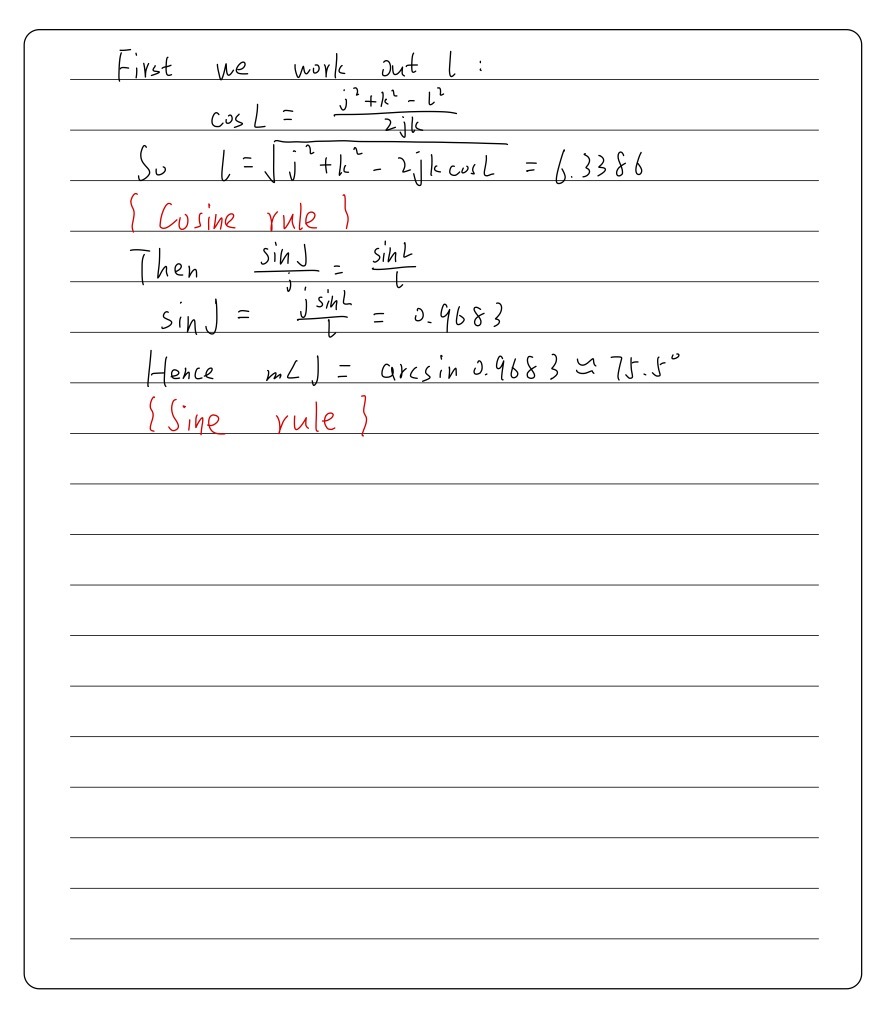 First we work out l :
cos L = (j² + k² - l²) / 2jk
So l = √(j² + k² - 2jk cos L) = 6.3386
{ Cosine rule }
Then sin J / j = sin L / l
sin J = j sin L / l = 0.9683
Hence m∠J = arcsin 0.9683 ≈ 75.5°
{ Sine rule }